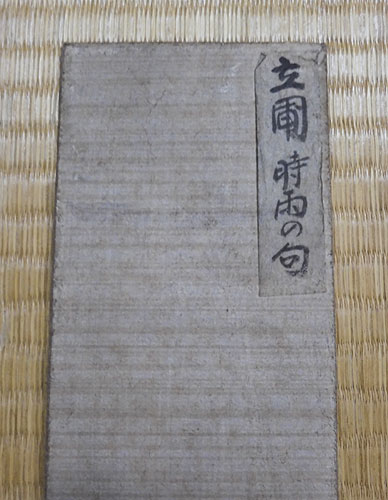 立圃 時雨の句